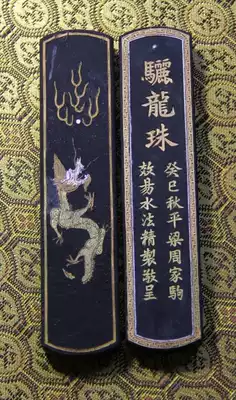 驪龍珠
癸巳秋平梁周家駒
放易水法精製敬呈